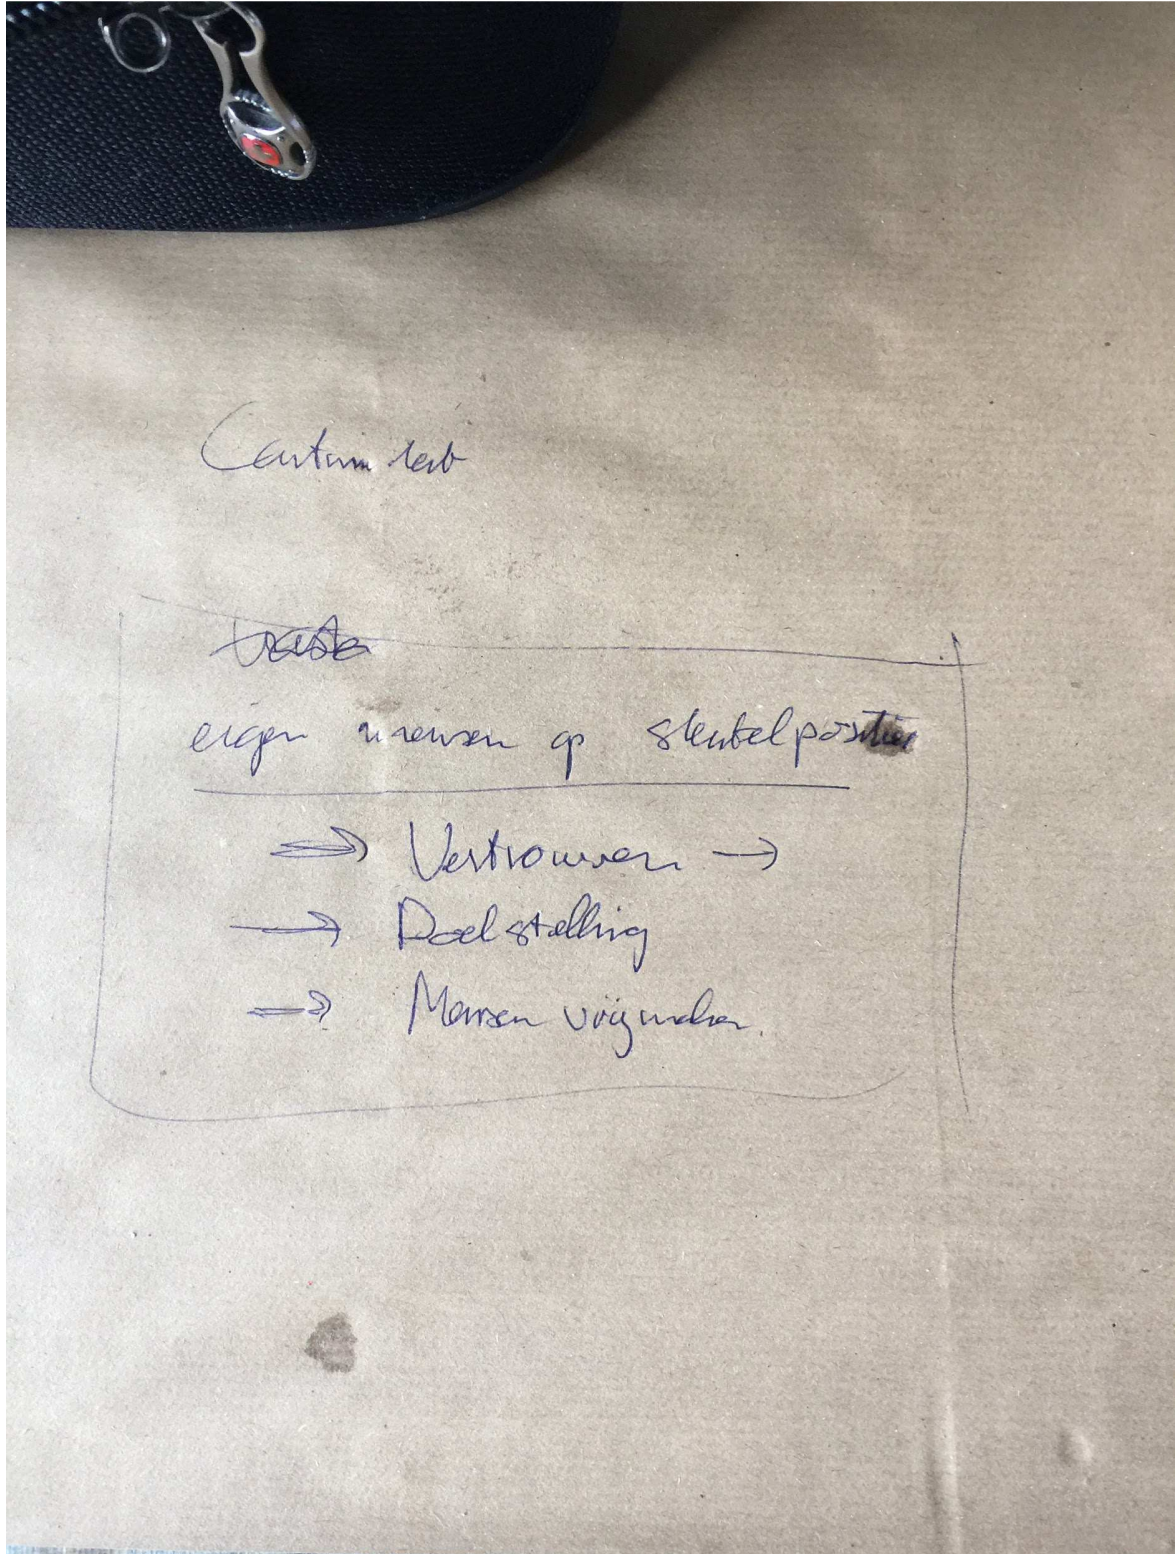 eigen mensen op sleutelpositie
⇒ Vertrouwen →
→ Doelstelling
⇒ Mensen vrijmaken.